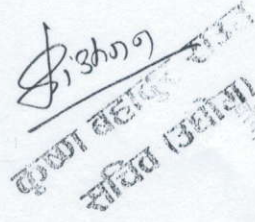 कृष्ण बहादुर राउत
सचिव (उद्योग)